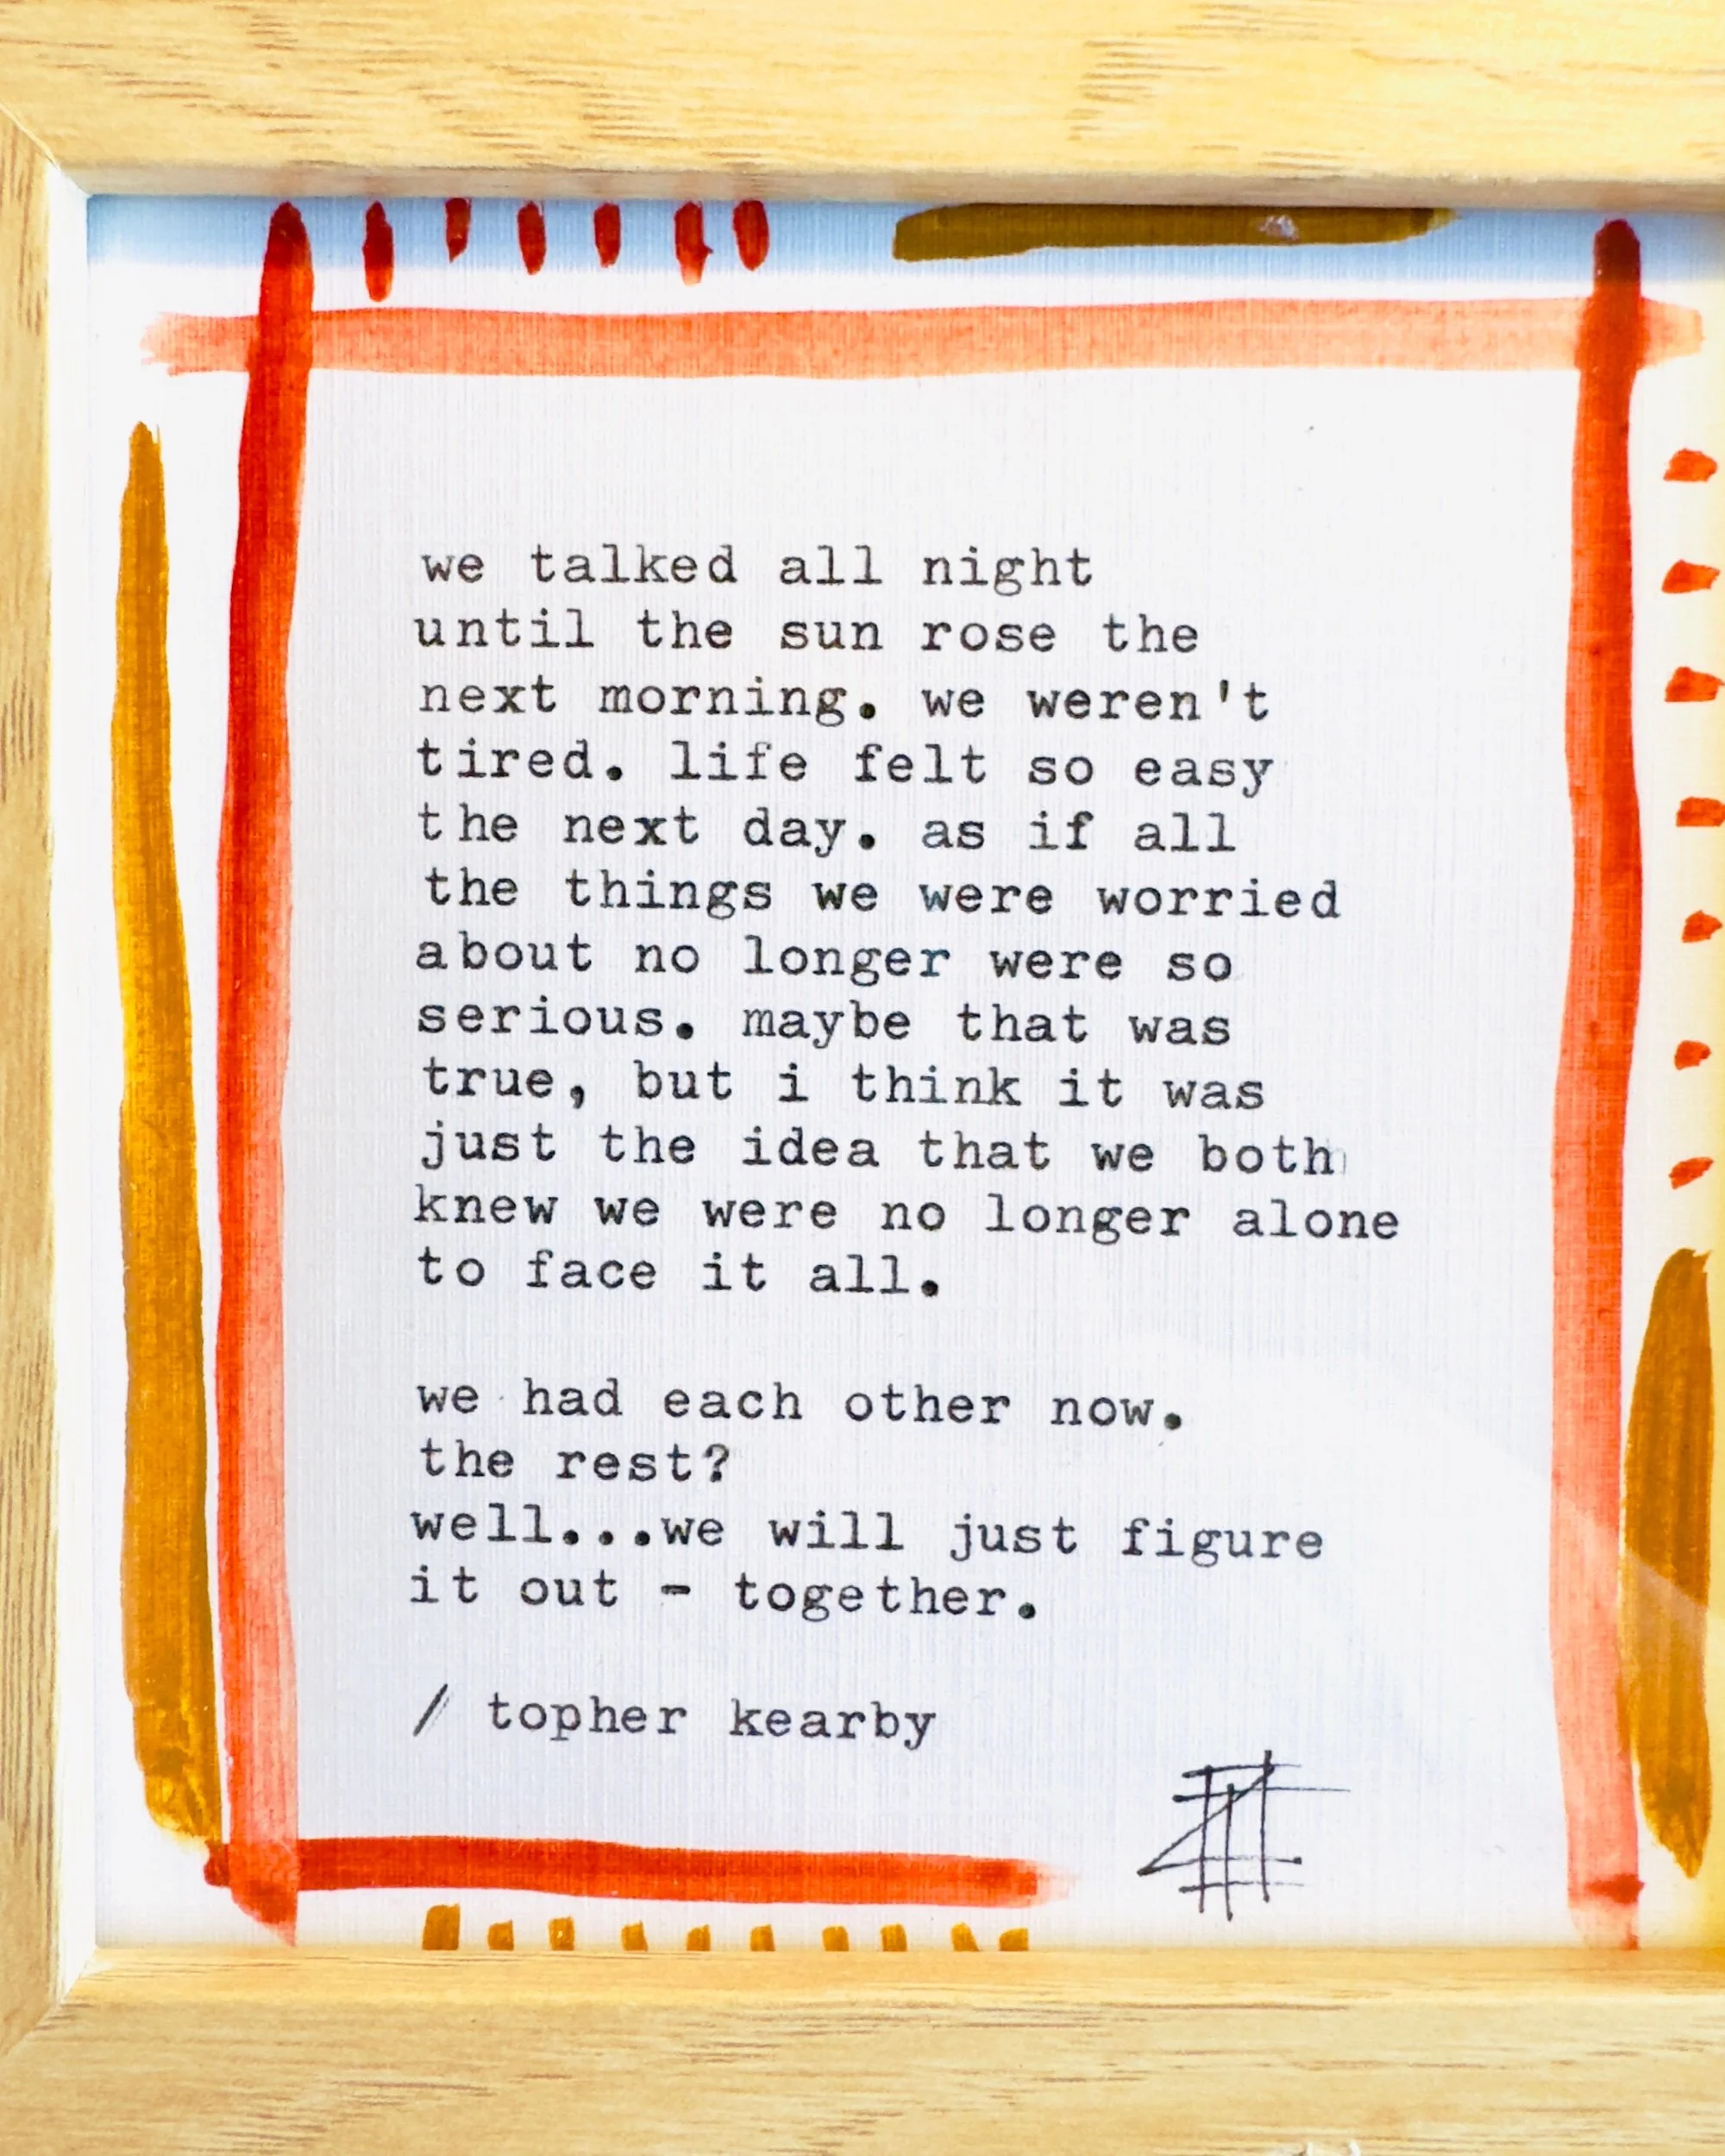 we talked all night
until the sun rose the
next morning. we weren't
tired. life felt so easy
the next day. as if all
the things we were worried
about no longer were so
serious. maybe that was
true, but i think it was
just the idea that we both
knew we were no longer alone
to face it all.
we had each other now.
the rest?
well...we will just figure
it out - together.
/ topher kearby